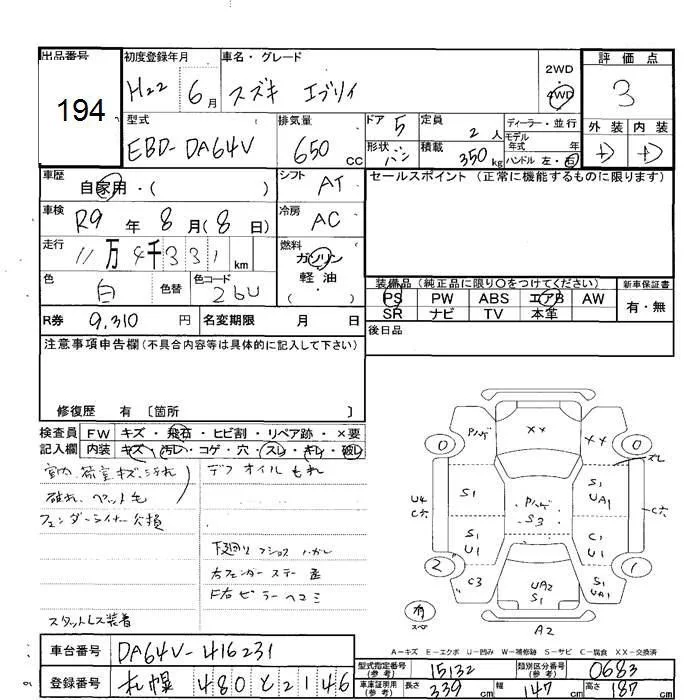 出品番号
194
初度登録年月
H22 6月
車名・グレード
スズキ エブリィ
2WD
4WD
評価点
3
型式
EBD-DA64V
排気量
650 cc
ドア 5
定員 2人
ディーラー・並行
モデル
年式 年
形状 バン
積載 350kg
ハンドル 左・右
外装 内装
車歴
自家用・( )
シフト AT
セールスポイント (正常に機能するものに限ります)
車検
R9年 8月(8日)
冷房 AC
走行
11万4千331km
燃料
ガソリン
軽油
( )
色
白
色替
色コード
26U
装備品(純正品に限り〇をつけてください)
新車保証書
PS PW ABS エアB AW
有・無
SR ナビ TV 本革
R券 9,310円
名変期限 月 日
後日品
注意事項申告欄(不具合内容等は具体的に記入して下さい)
修復歴 有 〔箇所 〕
検査員 FW キズ・飛石・ヒビ割・リペア跡・×要
記入欄 内装 キズ・汚レ・コゲ・穴・スレ・キレ・破レ
室内、荷室キズ、汚れ
破れ、ペット毛
フェンダーライナー欠損
デフオイルもれ
スタットレス装着
F右ピラーヘコミ
パンダ
XX
XX
0
0
スレ
S1
S1
UA1
U4
C穴
S3
C穴
S1
U1
C1
U1
2
1
C3
UA2
S1
S1
UA1
有
スペア
A2
A-キズ E-エクボ U-凹み W-補修跡 S-サビ C-腐食 XX-交換済
車台番号 DA64V-416231
登録番号 札幌 480 と 2146
型式指定番号
(参考)
15132
類別区分番号
(参考)
0683
車庫証明用
(参考)
長さ 339cm
幅 147cm
高さ 187cm